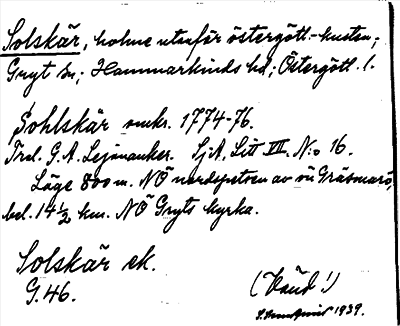 Solskär, holme utanför östergötl.-kusten;
Gryt sn; Hammarkinds hd; Östergötl. l.
Sohlskär omkr. 1774-76.
Trol. G.A. Lejonanker. SjA, Litt VII. N:o 16.
Läge 800 m. NÖ nordspetsen av ön Gräsmarö,
bel. 14 1/2 km. NÖ Gryts kyrka.
Solskär ek.
G.46. (Känd!)
1939.